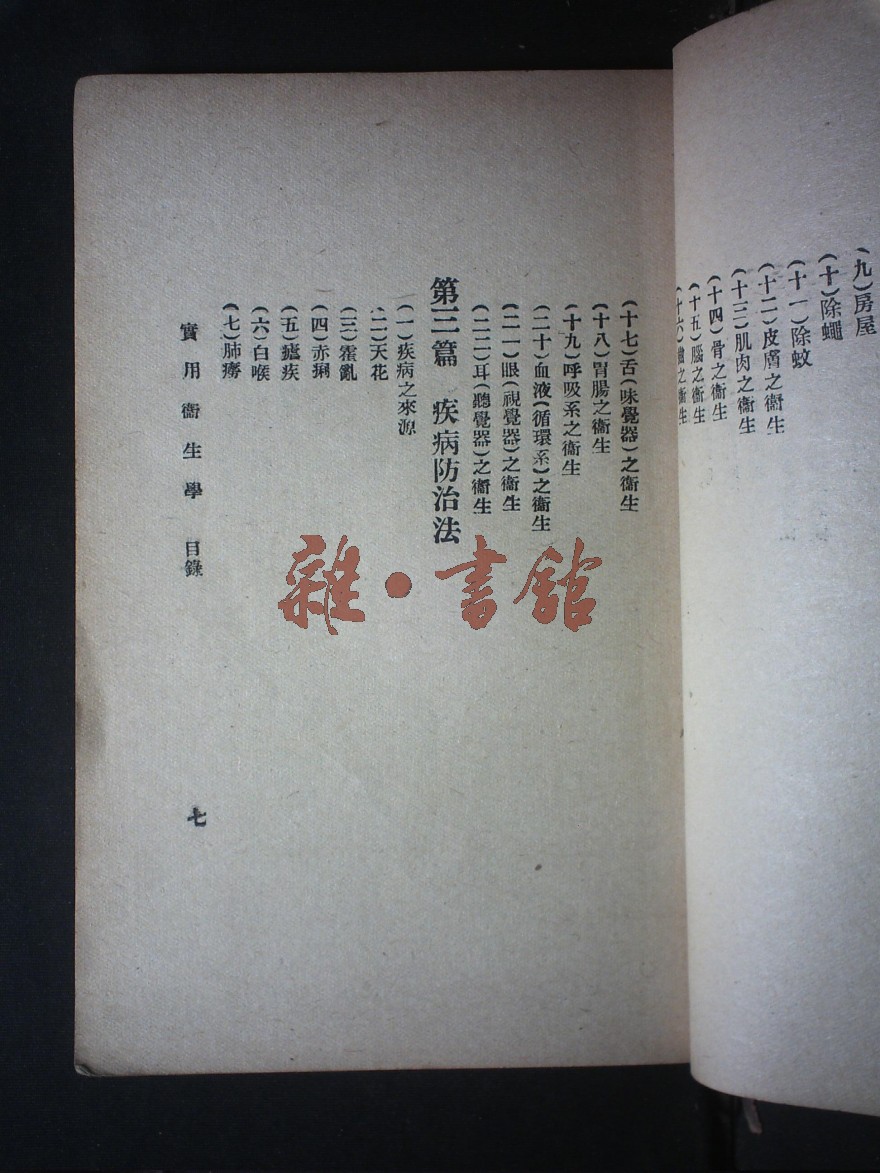 (九)房屋
(十)除蠅
(十一)除蚊
(十二)皮膚之衞生
(十三)肌肉之衞生
(十四)骨之衞生
(十五)腦之衞生
(十六)之衞生
(十七)舌(味覺器)之衞生
(十八)胃腸之衞生
(十九)呼吸系之衞生
(二十)血液(循環系)之衞生
(二一)眼(視覺器)之衞生
(二二)耳(聽覺器)之衞生
第三篇 疾病防治法
(一)疾病之來源
(二)天花
(三)霍亂
(四)赤痢
(五)瘧疾
(六)白喉
(七)肺癆
實用衞生學 目錄
七
雜·書館